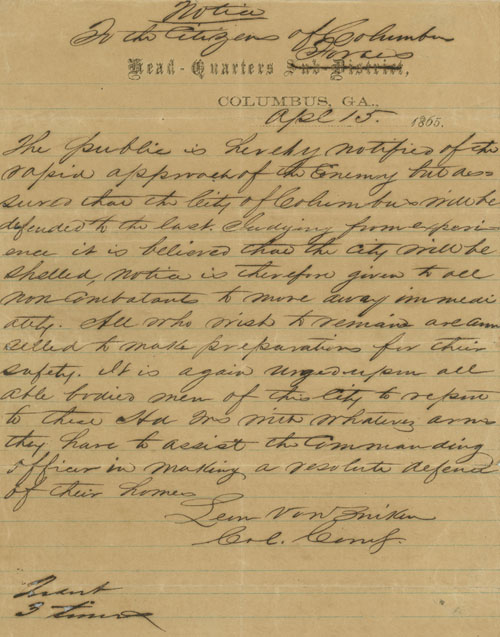 Notice
To the Citizens of Columbus
Forces
Head-Quarters Sub-District,
COLUMBUS, GA.,
Apl 15. 1865.
The public is hereby notified of the
rapid approach of the Enemy but as
sured that the City of Columbus will be
defended to the last. Judging from experi
ence it is believed that the city will be
shelled, notice is therefore given to all
non Combatants to move away immedi
ately. All who wish to remain are coun
selled to make preparations for their
safety. It is again urged upon all
able bodied men of the City to report
to these Hd Qrs with whatever arms
they have to assist the Commanding
officer in making a resolute defence
of their homes
Leon Von Zinken
Col. Comg.
3 times